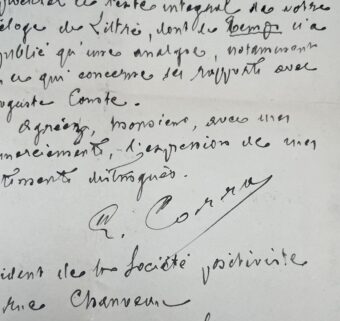 le texte intégral de votre
éloge de Littré, dont le Temps n'a
publié qu'une analyse, notamment
en ce qui concerne ses rapports avec
Auguste Comte.
Agréez, Monsieur, avec mes
remerciements, l'expression de mes
sentiments distingués.
E. Corra
sident de la Société positiviste
rue Chauveau